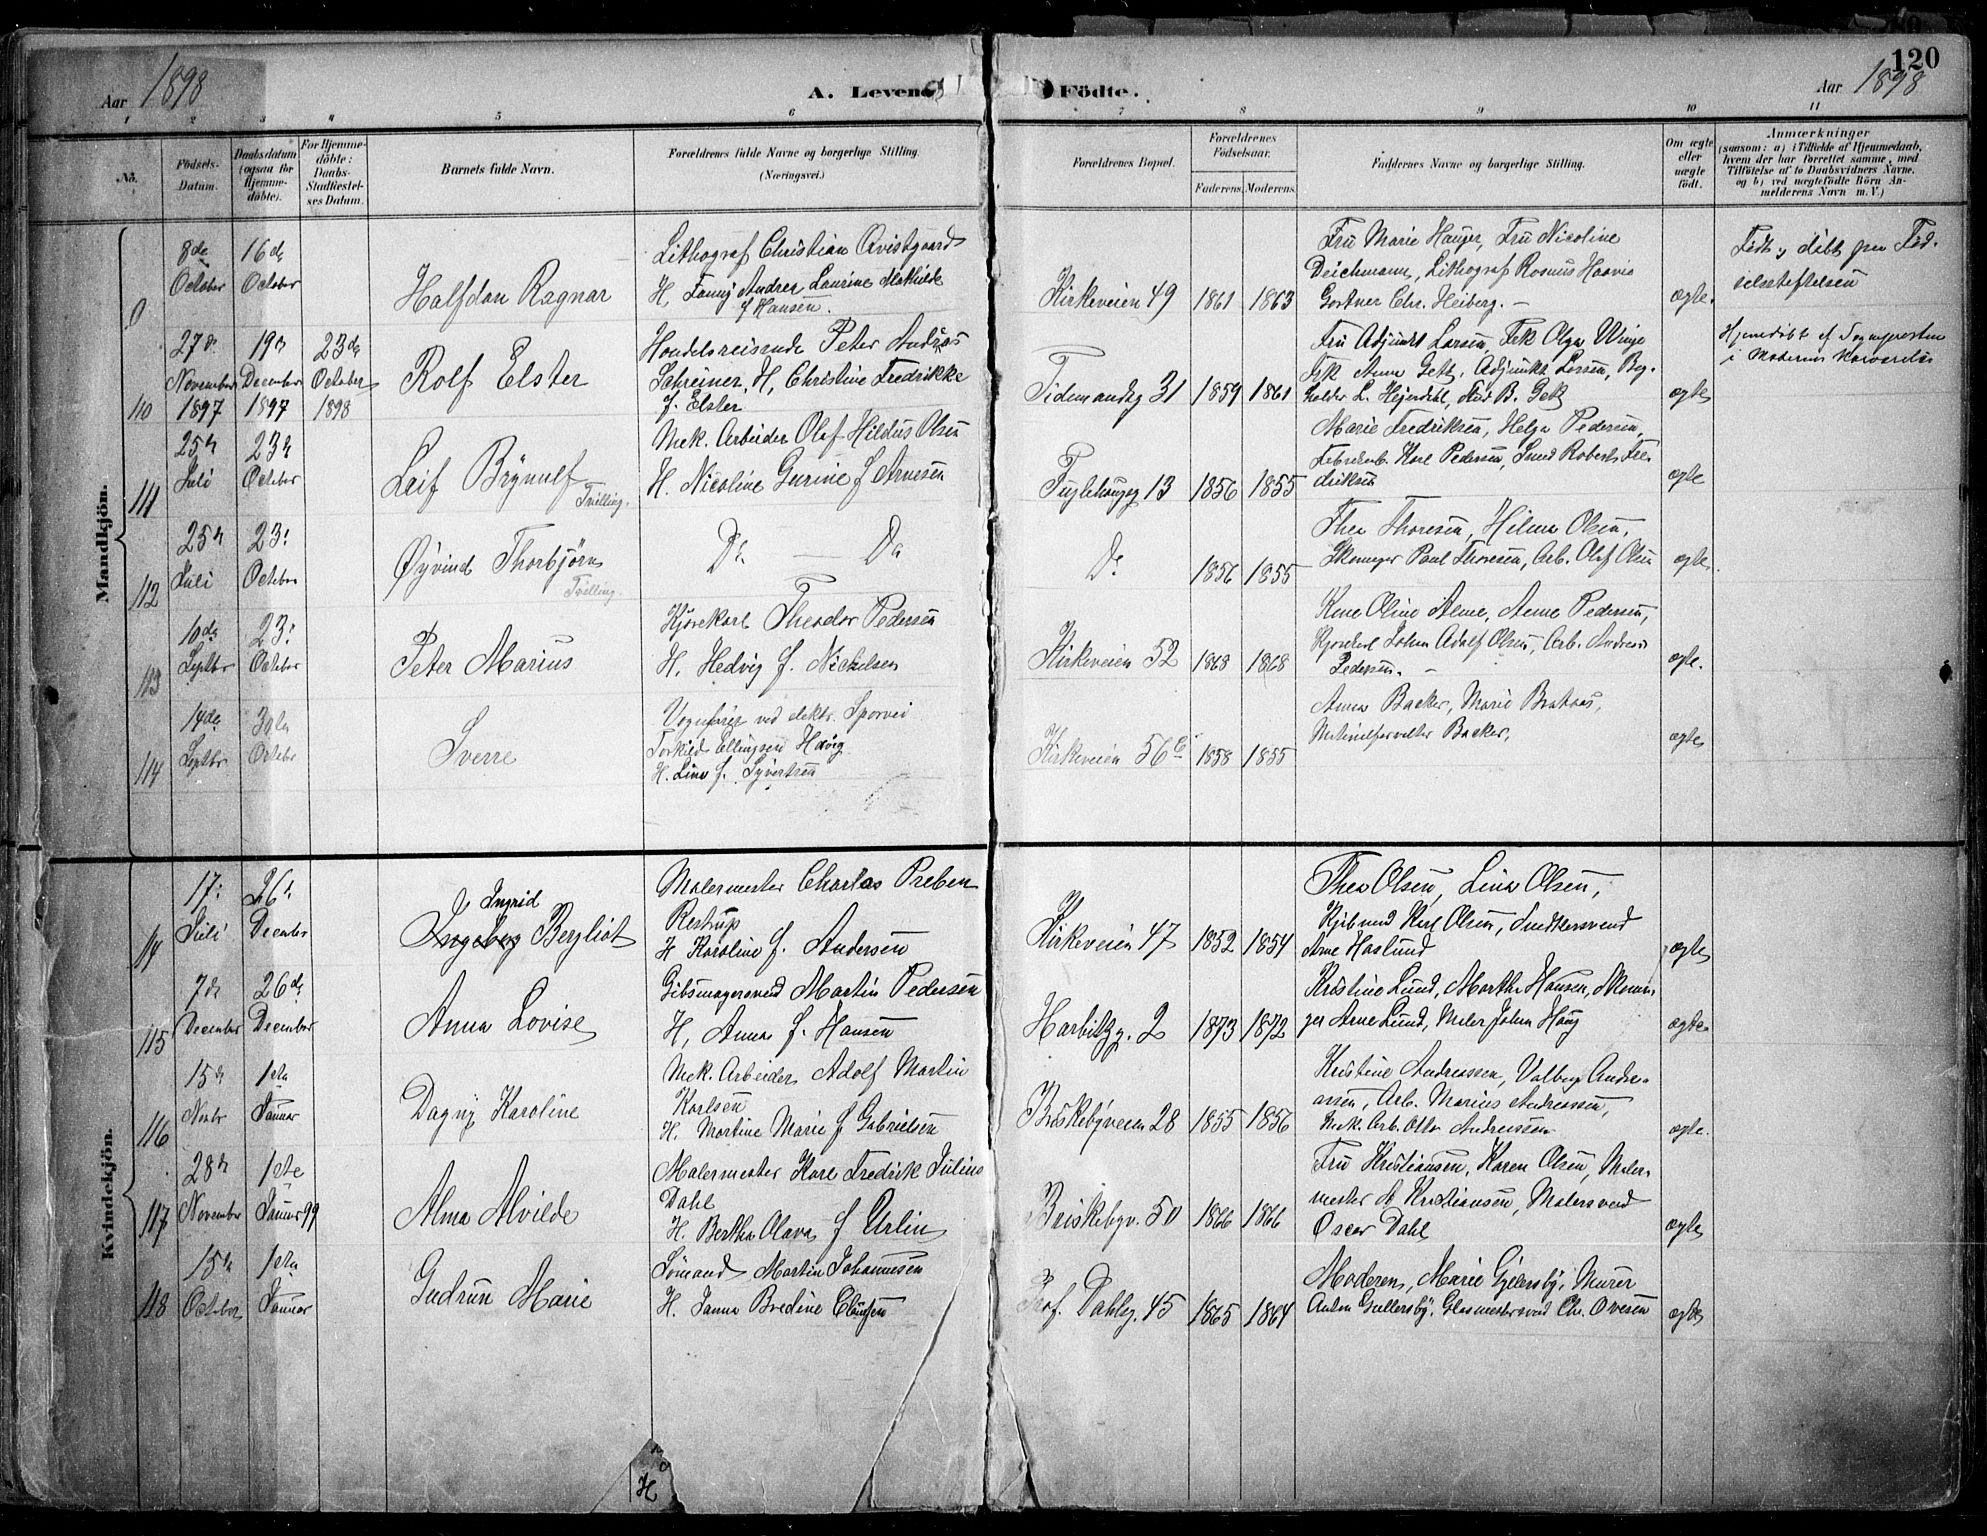 120
Aar 1898
A. Levende Födte.
Aar 1898
1 2 3 4 5 6 7 8 9 10 11
No.
Födsels-Datum.
Daabsdatum (ogsaa for Hjemme-döbte).
For Hjemme-döbte: Daabs-Stadfæstel-ses Datum.
Barnets fulde Navn.
Forældrenes fulde Navne og borgerlige Stilling. (Næringsvei.)
Forældrenes Bopæl.
Forældrenes Födselsaar.
Faderens. Moderens.
Faddernes Navne og borgerlige Stilling.
Om ægte eller uægte födt.
Anmærkninger
(saasom: a) i Tilfælde af Hjemmedaab,
hvem der har forrettet samme, med
Tilföielse af to Daabsvidners Navne.
og b) ved uægtefödte Börn An-
melderens Navn m. V.)
Mandkjön.
9 8de October 16de October
Halfdan Ragnar
Lithograf Christian Qvistgaard
H. Fanny Andrea Laurine Mathilde
f Hansen.
Kirkeveien 49 1861 1863
Fru Marie Hauger, Fru Nicoline
Deichmann, Lithograf Rasmus Haavig
Gartner Chr. Heiberg. —
ægte.
Født og døbt paa Fød-
selsstiftelsen
110 27de November 1897 19de December 1897 23de October 1898
Rolf Elster
Handelsreisende Peter Andreas
Schreiner, H, Christine Fredrikke
f. Elster
Tidemandsg 31 1859 1861
Fru Adjunkt Larsen, Frk Olga Vinje
Frk Anna Getz, Adjunkt Larsen, Bog-
holder L. Hejerdahl, Stud B. Getz
ægte
Hjemmedøbt af Sognepresten
i Moderens Nærværelse
111 25de Juli 23de October
Leif Brynulf
Tvilling.
Mek. Arbeider Olaf Hildus Olsen
H. Nicoline Gurine f Arnesen
Fuglehaugg 13 1856 1855
Marie Fredriksen, Helga Pedersen,
Fabrikarb. Karl Pedersen, Smed Robert Fre-
driksen
ægte
112 25de Juli 23: October
Øyvind Thorbjørn
Tvilling.
Do — Do
Do 1856 1855
Thea Thoresen, Hilma Olsen,
Skomager Paul Thoresen, Arb. Olaf Olsen
ægte.
113 10de Septbr 23: October
Peter Marius
Kjørekarl Theodor Pedersen
H. Hedvig f. Nickelsen
Kirkeveien 52 1868 1868
Kone Oline Arne, Anne Pedersen,
Kjørekarl Johan Adolf Olsen, Arb. Andreas
Pedersen. —
ægte.
114 14de Septbr 30te October
Sverre
Vognfører ved elektr. Sporvei
Torkild Ellingsen Haavig
H. Lina f. Syvertsen
Kirkeveien 56 c 1858 1855
Anna Backer, Marie Brataas,
Materialforvalter Backer.
ægte
Kvindekjön.
114 17: Juli 26de December
Ingrid
Ingeborg Bergliot
Malermester Charlas Preben
Restrup
H Karoline f. Andersen
Kirkeveien 47 1852 1854
Thea Olsen, Lina Olsen,
Kjøbmand Karl Olsen, Snedkersvend
Arne Haslund
ægte
115 7de December 26de December
Anna Lovise
Gibsmagersvend Martin Pedersen
H, Anna f. Hansen
Harbitzg. 2 1873 1872
Kristine Lund, Martha Hansen, Skoma-
ger Arne Lund, Maler Johan Haug
ægte
116 15de Novbr 1ste Januar
Dagny Karoline
Mek. Arbeider Adolf Martin
Karlsen
H. Martine Marie f Gabrielsen
Briskebyveien 28 1855 1856
Kristine Andreassen, Valborg Andre-
assen, Arb. Marius Andreassen,
Mek. Arb. Otto Andreassen
ægte.
117 28de November 1ste Januar 99
Alma Alvilde
Malermester Karl Fredrik Julius
Dahl
H. Bertha Olava f Urlin
Briskebyv. 50 1866 1866
Fru Kristiansen, Karen Olsen, Maler-
mester A Kristiansen, Malersvend
Oscar Dahl
ægte
118 15de October 1ste Januar
Gudrun Marie
Sømand Martin Johannesen
H. Janna Bredine Clausen
Prof. Dahlsg. 45 1865 1864
Moderen, Marie Gjellersby, Murer
Anton Gullersby, Glasmestersvend Chr. Ovesen
ægte
H